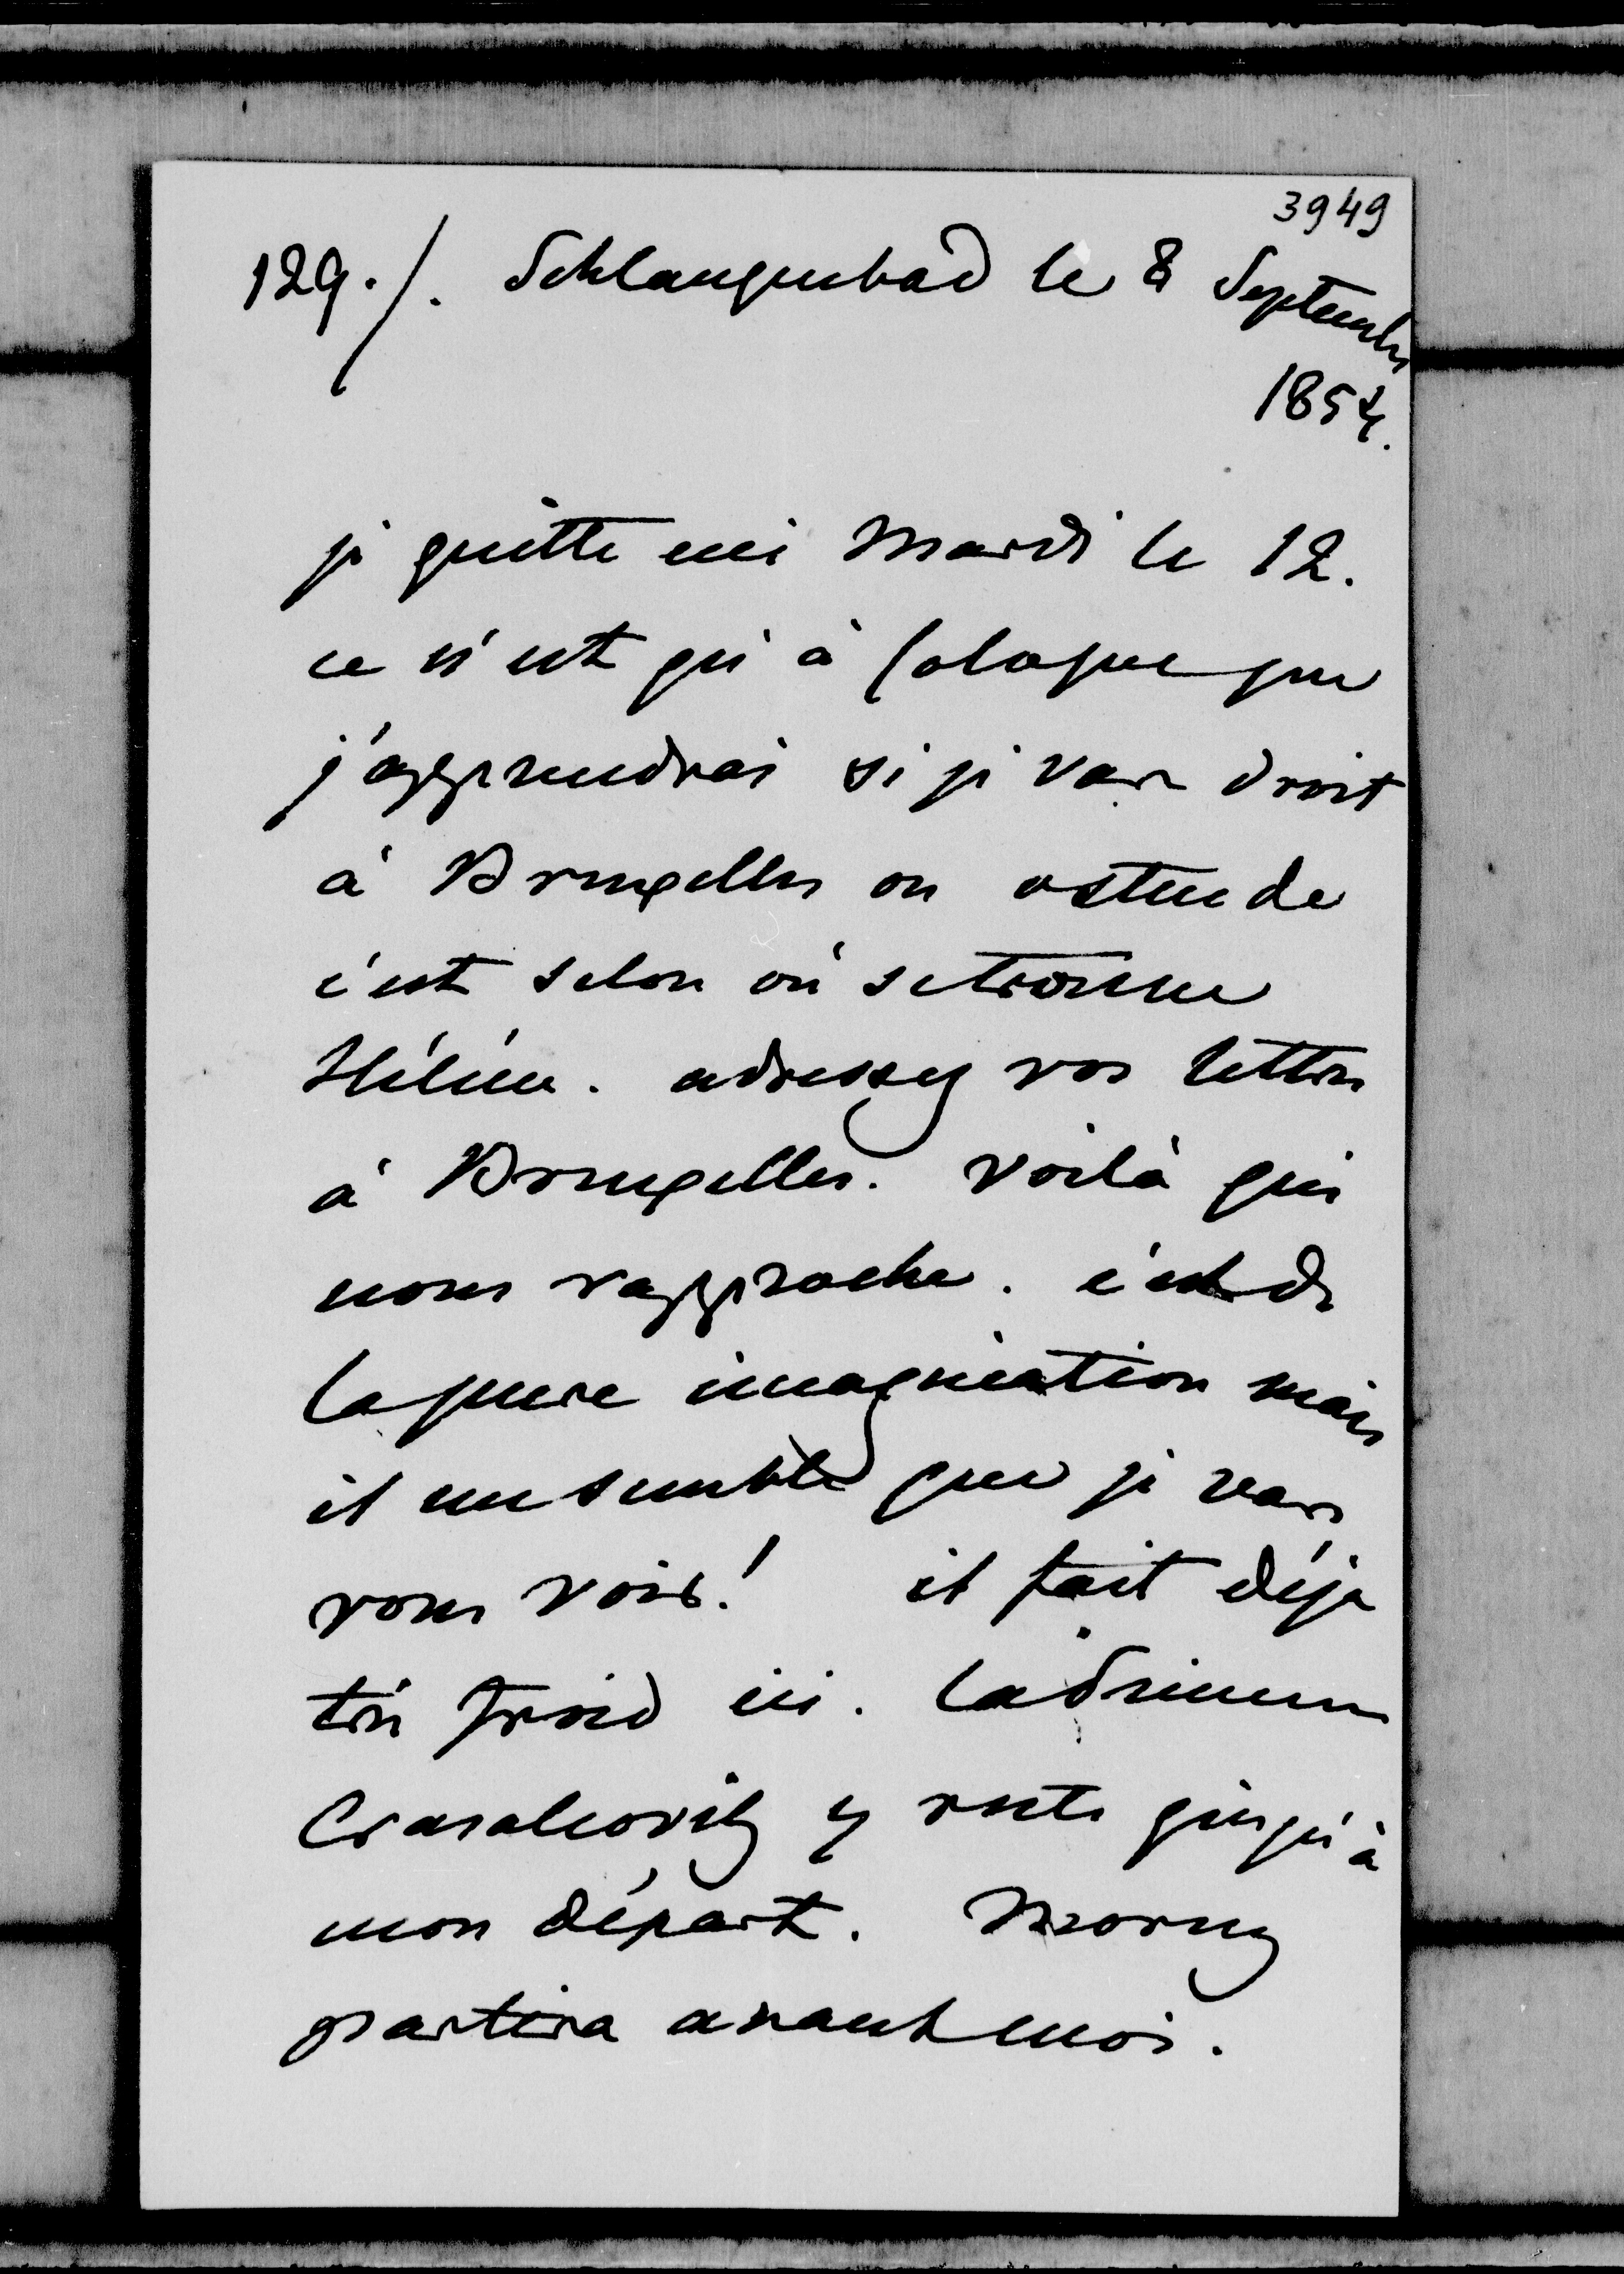 3949
129./. Schlangenbad le 8 Septembre
1854.
je quitte ici Mardi le 12.
ce n'est qu'à Cologne que
j'apprendrai si je vais droit
à Bruxelles ou ostende
c'est selon où se trouve
Hélène. adressez vos lettres
à Bruxelles. Voilà qui
nous rapproche. c'est de
la pure imagination mais
il me semble que je vais
vous voir! il fait déjà
très froid ici. la Princesse
Crasalcovitz y reste jusqu'à
mon départ. Morny
partira avant moi.